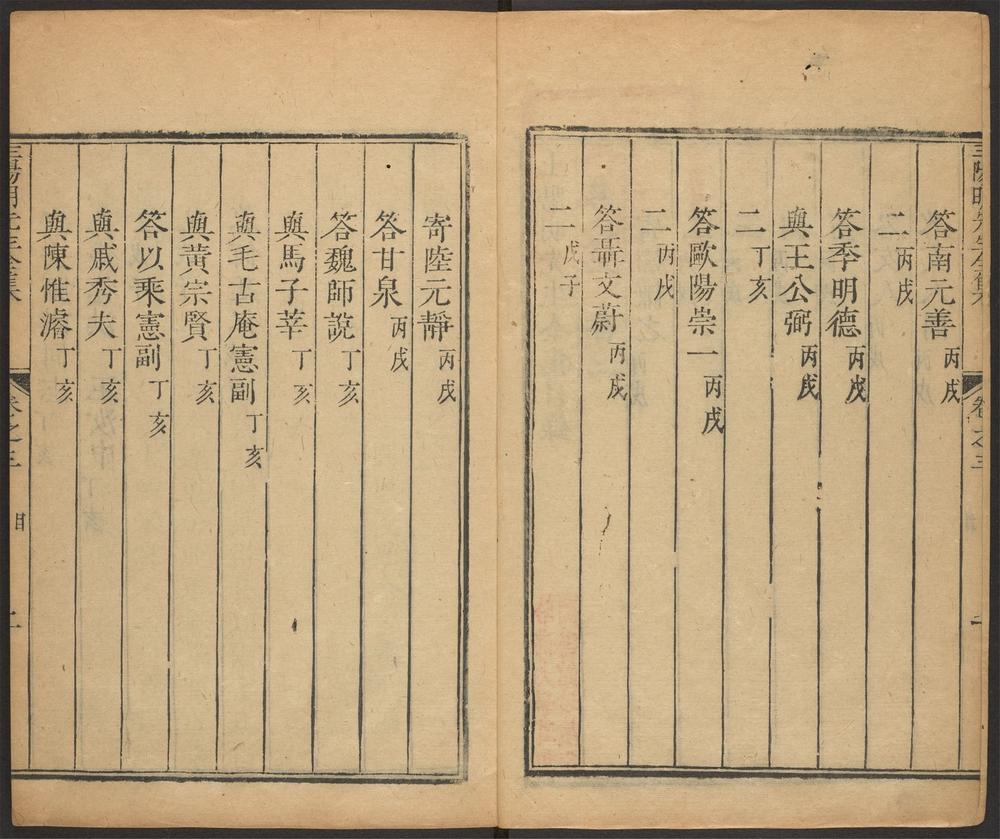 答南元善丙戌
二丙戌
答季明德丙戌
與王公弼丙戌
二丁亥
答歐陽崇一丙戌
二丙戌
答聶文蔚丙戌
二戊子
卷之三
寄陸元靜丙戌
答甘泉丙戌
答魏師說丁亥
與馬子莘丁亥
與毛古庵憲副丁亥
與黃宗賢丁亥
答以乘憲副丁亥
與戚秀夫丁亥
與陳惟濬丁亥